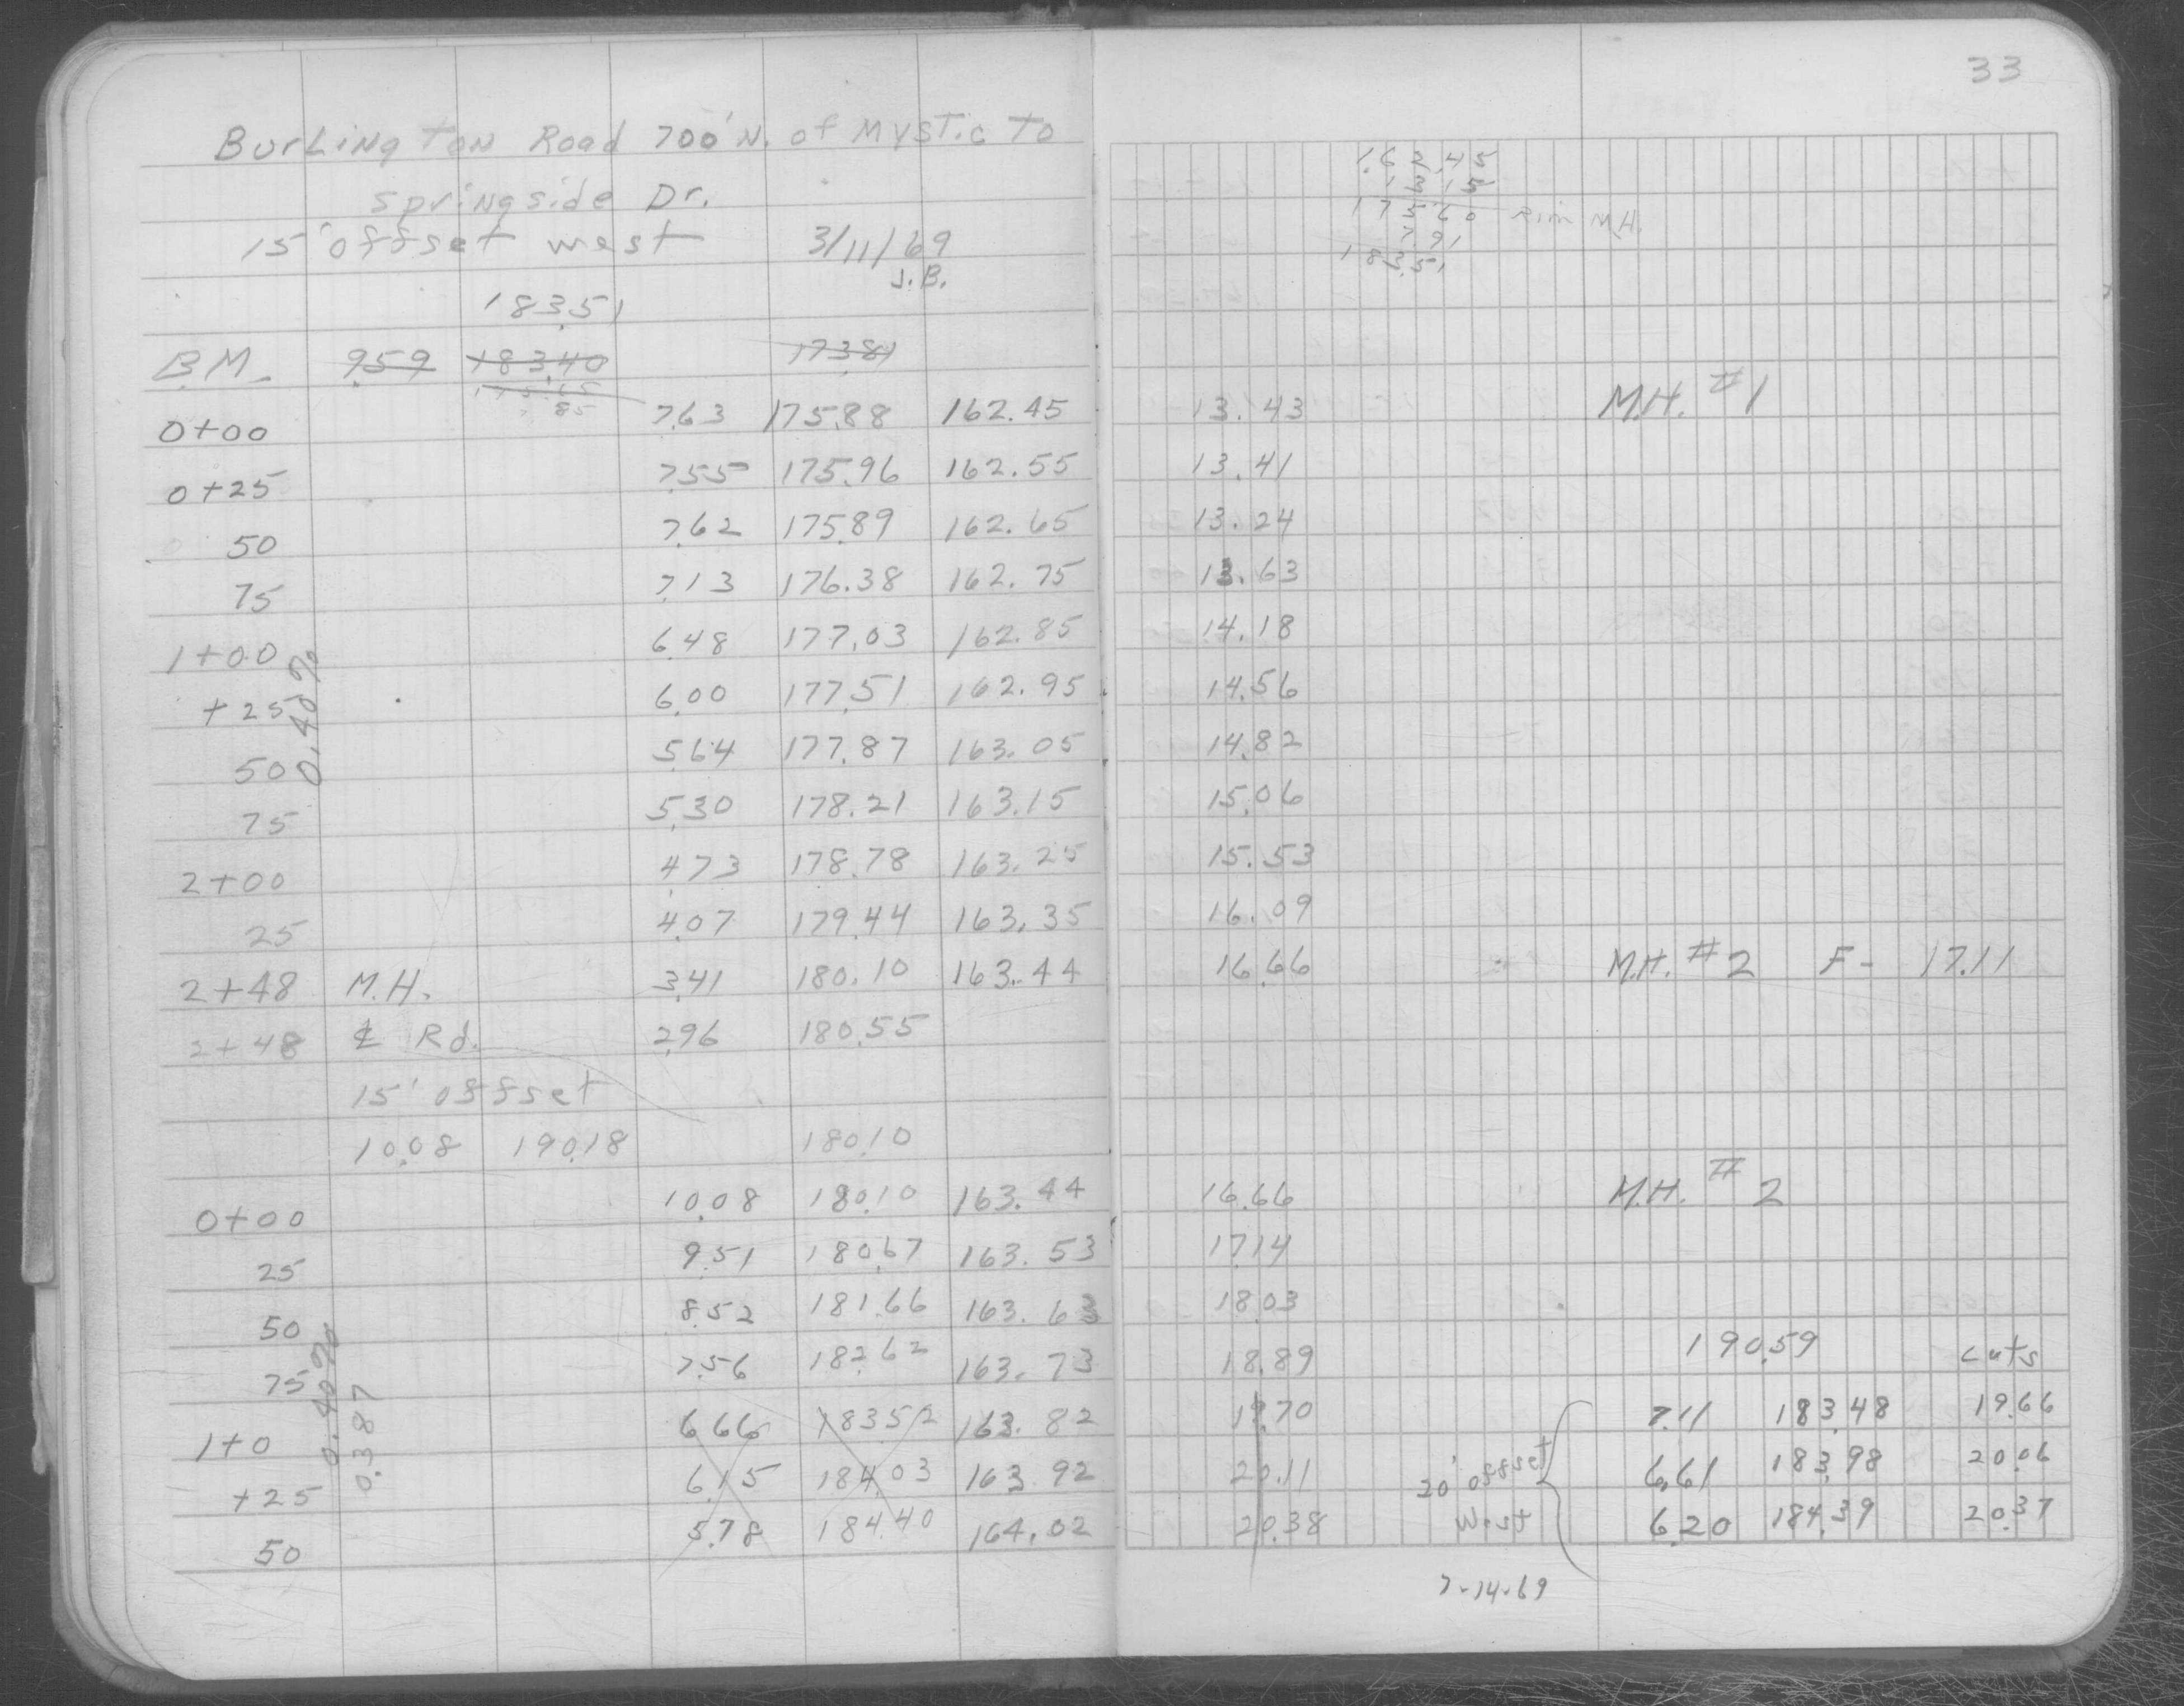 33
Burlington Road 700' N. of Mystic to
Springside Dr.
15' offset west 3/11/69
J.B.
162.45
1315
17560 Rim M.H.
7.91
183.51
183.51
B.M. 9.59 183.40 173.81
0+00 7.63 175.88 162.45 13.43 M.H. #1
0+25 7.55 175.96 162.55 13.41
50 7.62 175.89 162.65 13.24
75 7.13 176.38 162.75 13.63
1+00 6.48 177.03 162.85 14.18
+25 6.00 177.51 162.95 14.56
0.40%
50 5.64 177.87 163.05 14.82
75 5.30 178.21 163.15 15.06
2+00 4.73 178.78 163.25 15.53
25 4.07 179.44 163.35 16.09
2+48 M.H. 3.41 180.10 163.44 16.66 M.H. #2 F- 17.11
2+48 ℄ Rd. 2.96 180.55
15' offset
10.08 190.18 180.10
0+00 10.08 180.10 163.44 16.66 M.H. #2
25 9.51 180.67 163.53 17.14
50 8.52 181.66 163.63 18.03
190.59 cuts
75 7.56 182.62 163.73 18.89
0.40%
0.387
1+0 6.66 183.52 163.82 19.70 7.11 183.48 19.66
+25 6.15 184.03 163.92 20.11 20' offset 6.61 183.98 20.06
50 5.78 184.40 164.02 20.38 West 6.20 184.39 20.37
7-14-69